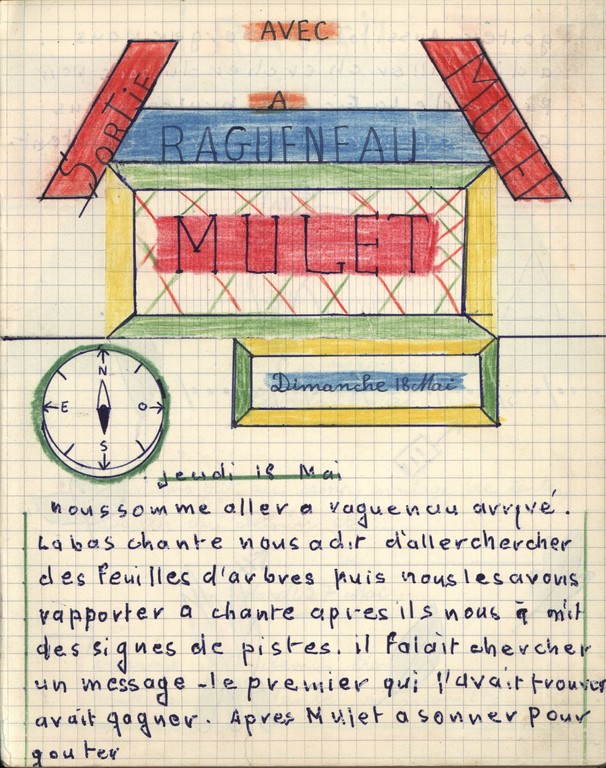 AVEC
SORTIE
A
MULET
RAGUENEAU
MULET
Dimanche 18 Mai
N
E O
S
jeudi 18 Mai
nous somme aller a ragueneau arryvé.
Labas chante nous a dit d'aller chercher
des feuilles d'arbres puis nous les avons
rapporter a chante apres ils nous à mit
des signes de pistes. il falait chercher
un message - le premier qui l'avait trouver
avait gagner. Apres Mulet a sonner pour
gouter